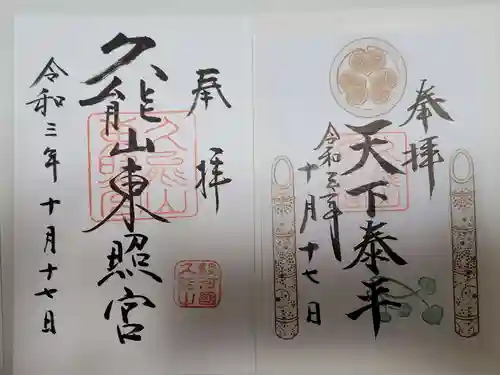 奉拝
久能山東照宮
令和三年十月十七日
奉拝
天下泰平
令和三年
十月十七日